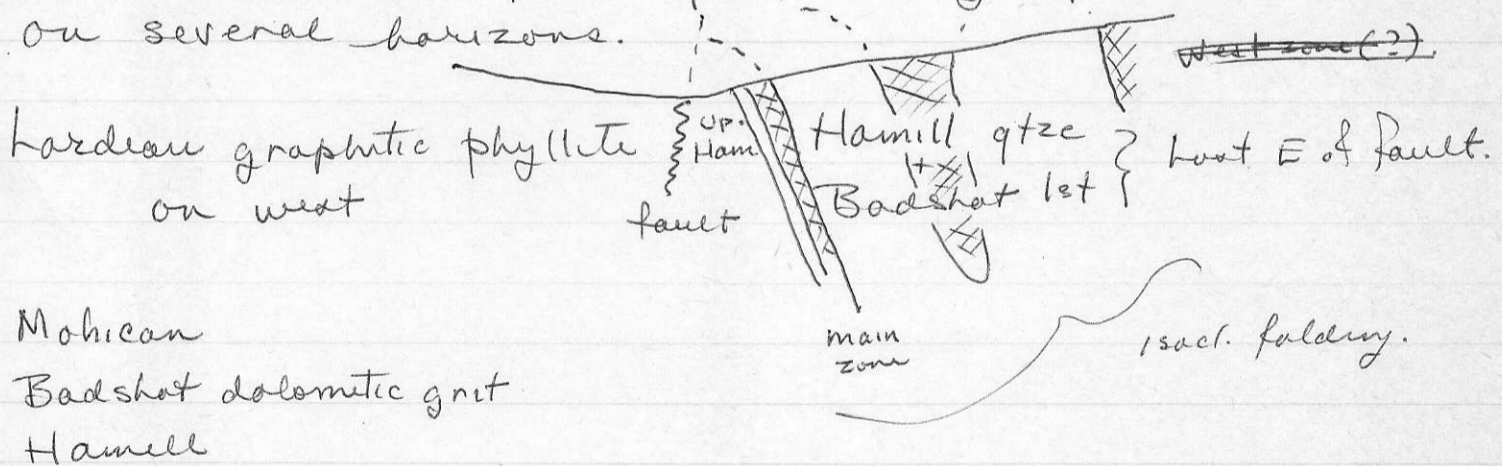 on several horizons.
West zone (?).
Lardeau graphitic phyllite
on west
up.
Ham.
fault
Hamill qtze
+
Badshot lst
E of fault.
main
zone
isocl. folding.
Mohican
Badshot dolomitic grit
Hamill